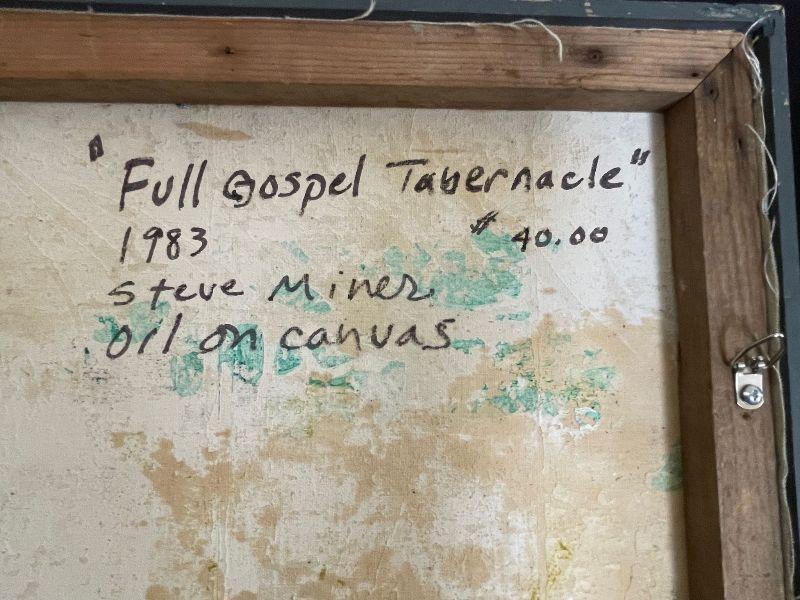 "Full Gospel Tabernacle"
1983 $40.00
Steve Miner
oil on canvas